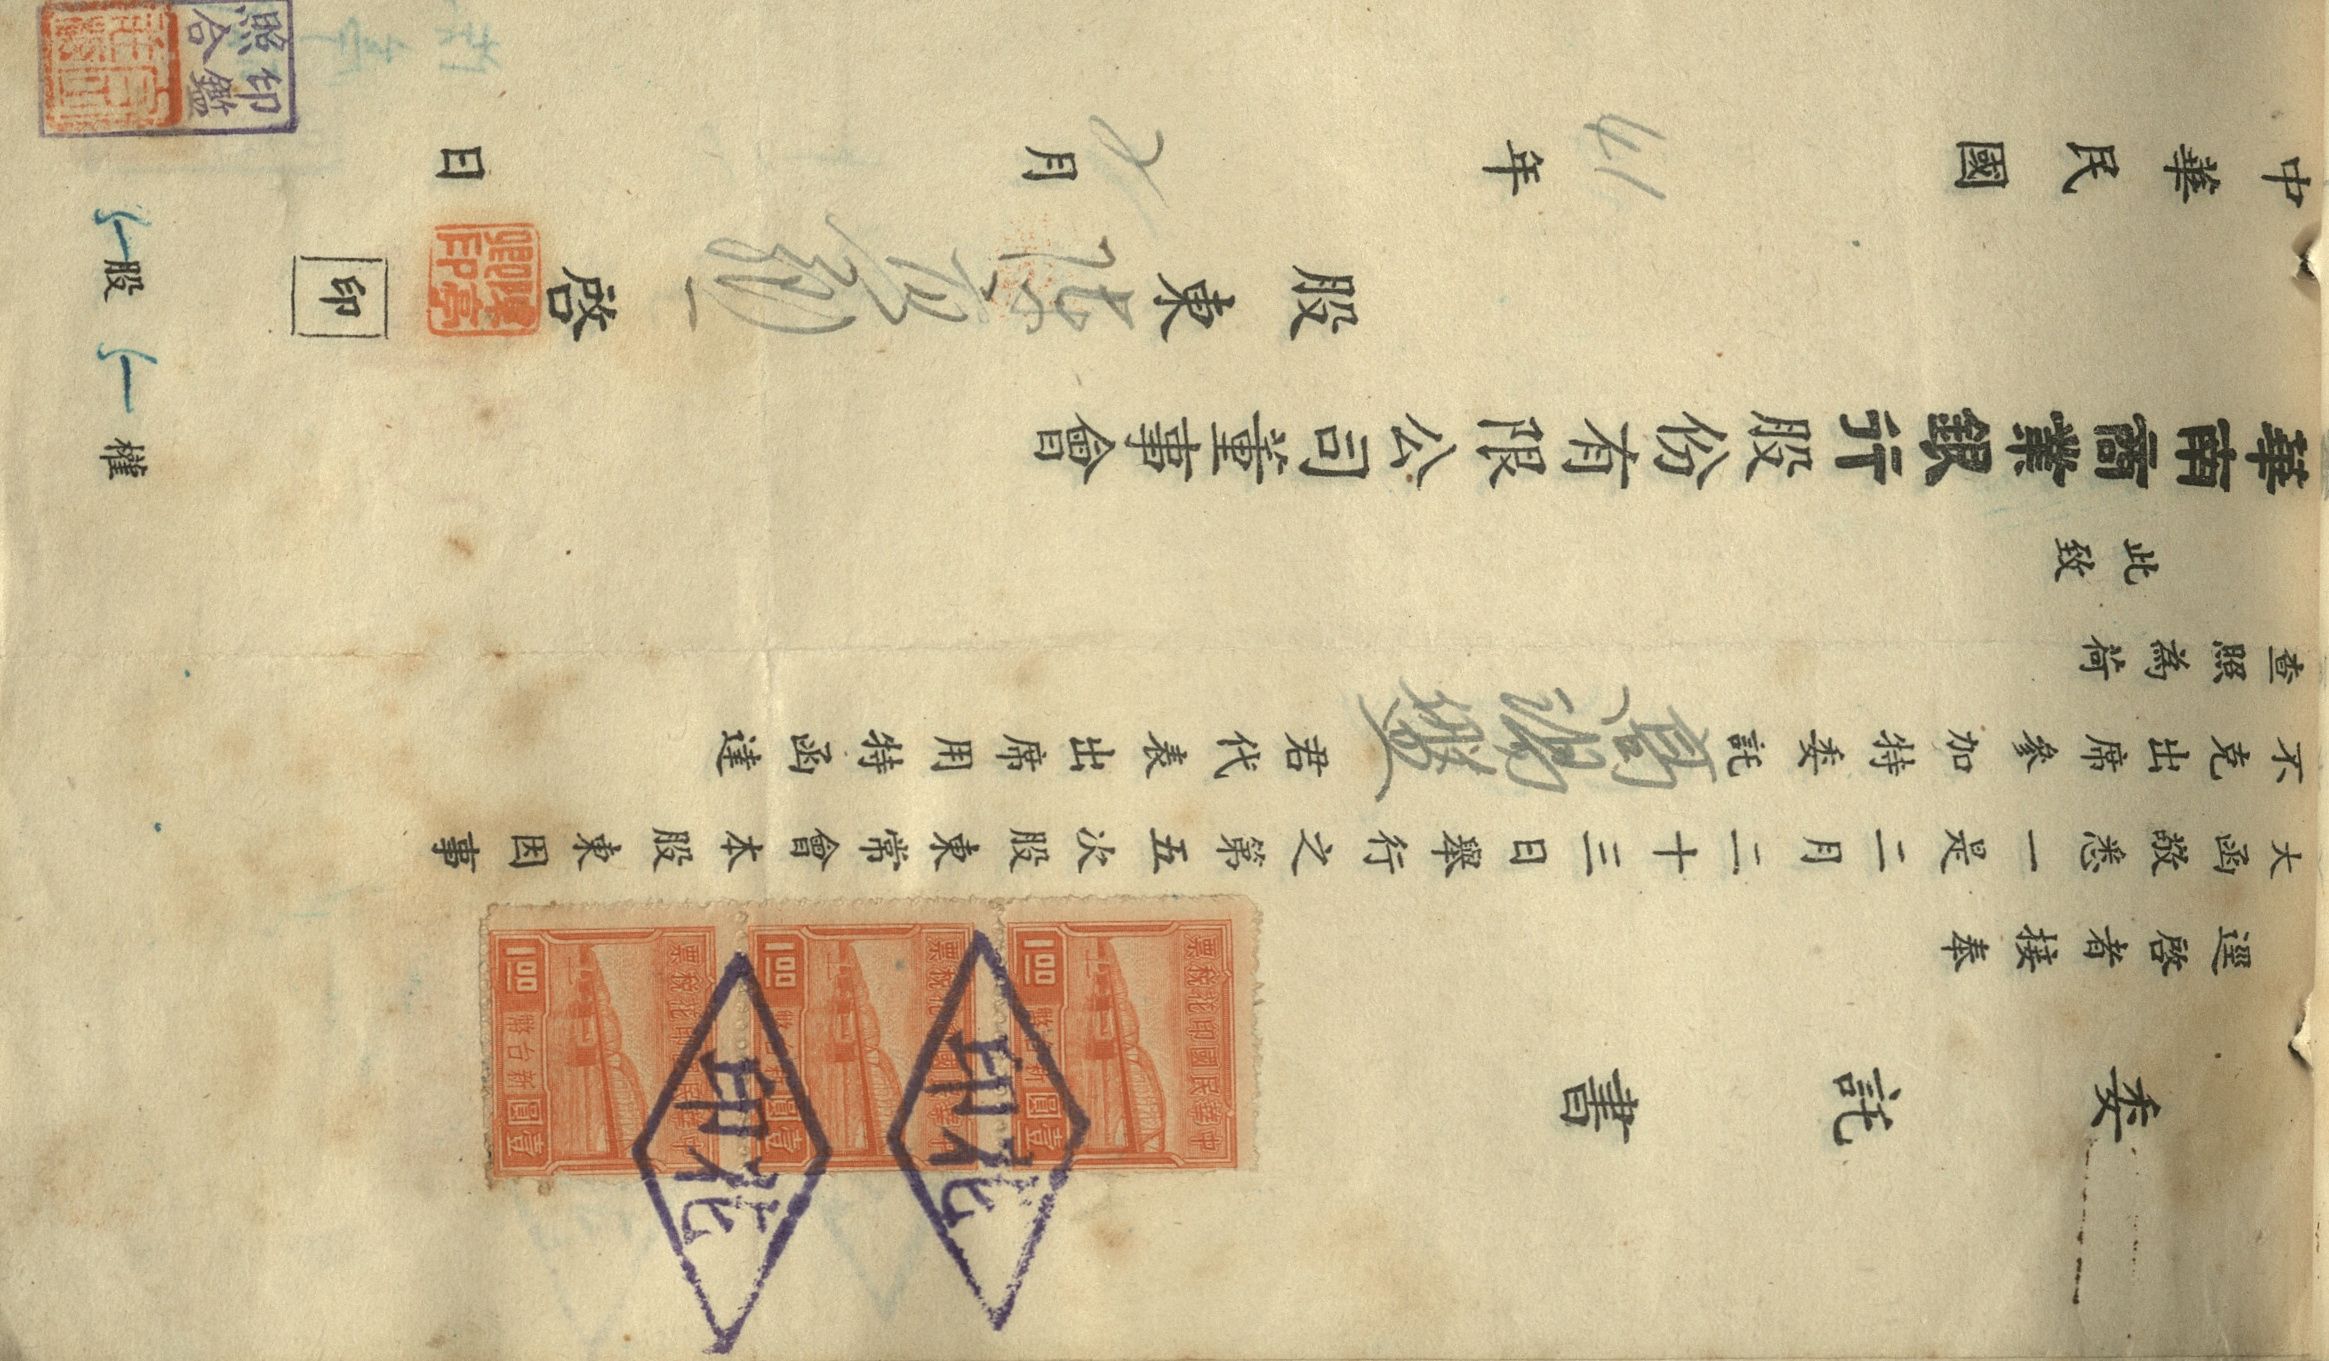 委託書
逕啓者接奉
大函敬悉一是二月二十三日舉行之第五次股東常會本股東因事
不克出席參加特委託
君代表出席用特函達
查照為荷
此致
華南商業銀行股份有限公司董事會
股東
啓
印
中華民國41年2月 日
股 權
印鑑
照合
中華民國印花稅票
1.00
新台幣
壹圓
中華民國印花稅票
1.00
新台幣
壹圓
中華民國印花稅票
1.00
新台幣
壹圓
印花
印花